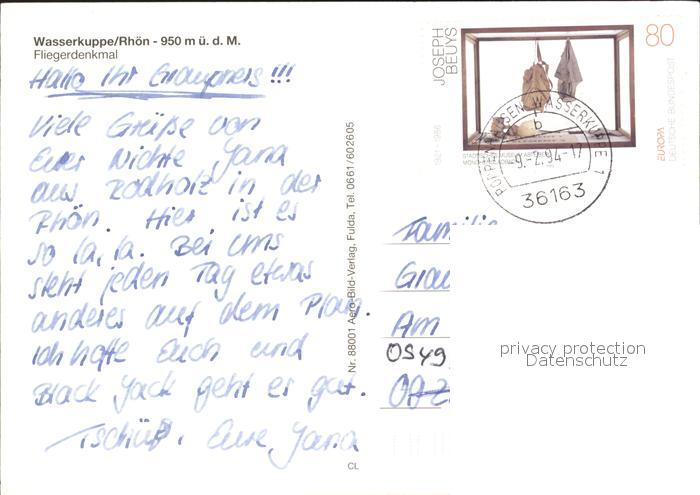 Wasserkuppe/Rhön - 950 m ü. d. M.
Fliegerdenkmal
Hallo Ihr Graupners !!!
Viele Grüße von
Eurer Nichte Jana
aus Rodholz in der
Rhön. Hier ist es
so la, la. Bei uns
steht jeden Tag etwas
anderes auf dem Plan.
Ich hoffe Euch und
Black Jack geht es gut.
Tschüß, Eure Jana
Nr. 88001 Aero-Bild-Verlag, Fulda, Tel. 0661/602605
CL
JOSEPH
BEUYS
1921 - 1986
80
EUROPA
DEUTSCHE BUNDESPOST
POPPENHAUSEN, WASSERKUPPE 1
b
-9.-2.94-17
36163
Familie
Grau
Am
OS49
privacy protection
Datenschutz